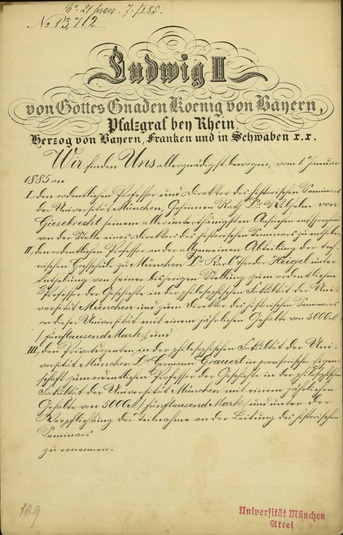 No 13,712
Ludwig II
von Gottes Gnaden Koenig von Bayern,
Pfalzgraf bey Rhein,
Herzog von Bayern, Franken und in Schwaben x.x.
Wir finden Uns allergnädigst bewogen, vom 1. Januar
1885 an
I. den ordentlichen Professor und Direktor des historischen Seminars
der Universität München, Geheimen Rath Dr. Wilhelm von
Giesebrecht seinem allerunterthänigsten Ansuchen entsprechend
von der Stelle eines Direktors des historischen Seminars zu entheben,
II. den ordentlichen Professor an der allgemeinen Abteilung der tech-
nischen Hochschule zu München Dr. Karl Theodor Heigel unter
Enthebung von seiner bisherigen Stellung zum ordentlichen
Professor der Geschichte in der philosophischen Fakultät der Uni-
versität München und zum Direktor des historischen Seminars
an dieser Universität mit einem jährlichen Gehalte von 5000 M
/: fünftausend Mark :/ und
III. den Privatdozenten in der philosophischen Fakultät der Uni-
versität München Dr. Hermann Grauert in
schaft zum ordentlichen Professor der Geschichte in der philosophischen
Fakultät der Universität München mit einem jährlichen
Gehalte von 5000 M /: fünftausend Mark :/ und unter der
Verpflichtung der Teilnahme an der Leitung des historischen
Seminars
zu ernennen.
169
Universität München